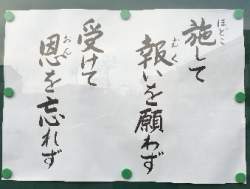 施して
報いを願わず
受けて
恩を忘れず
ほどこ
むく
おん